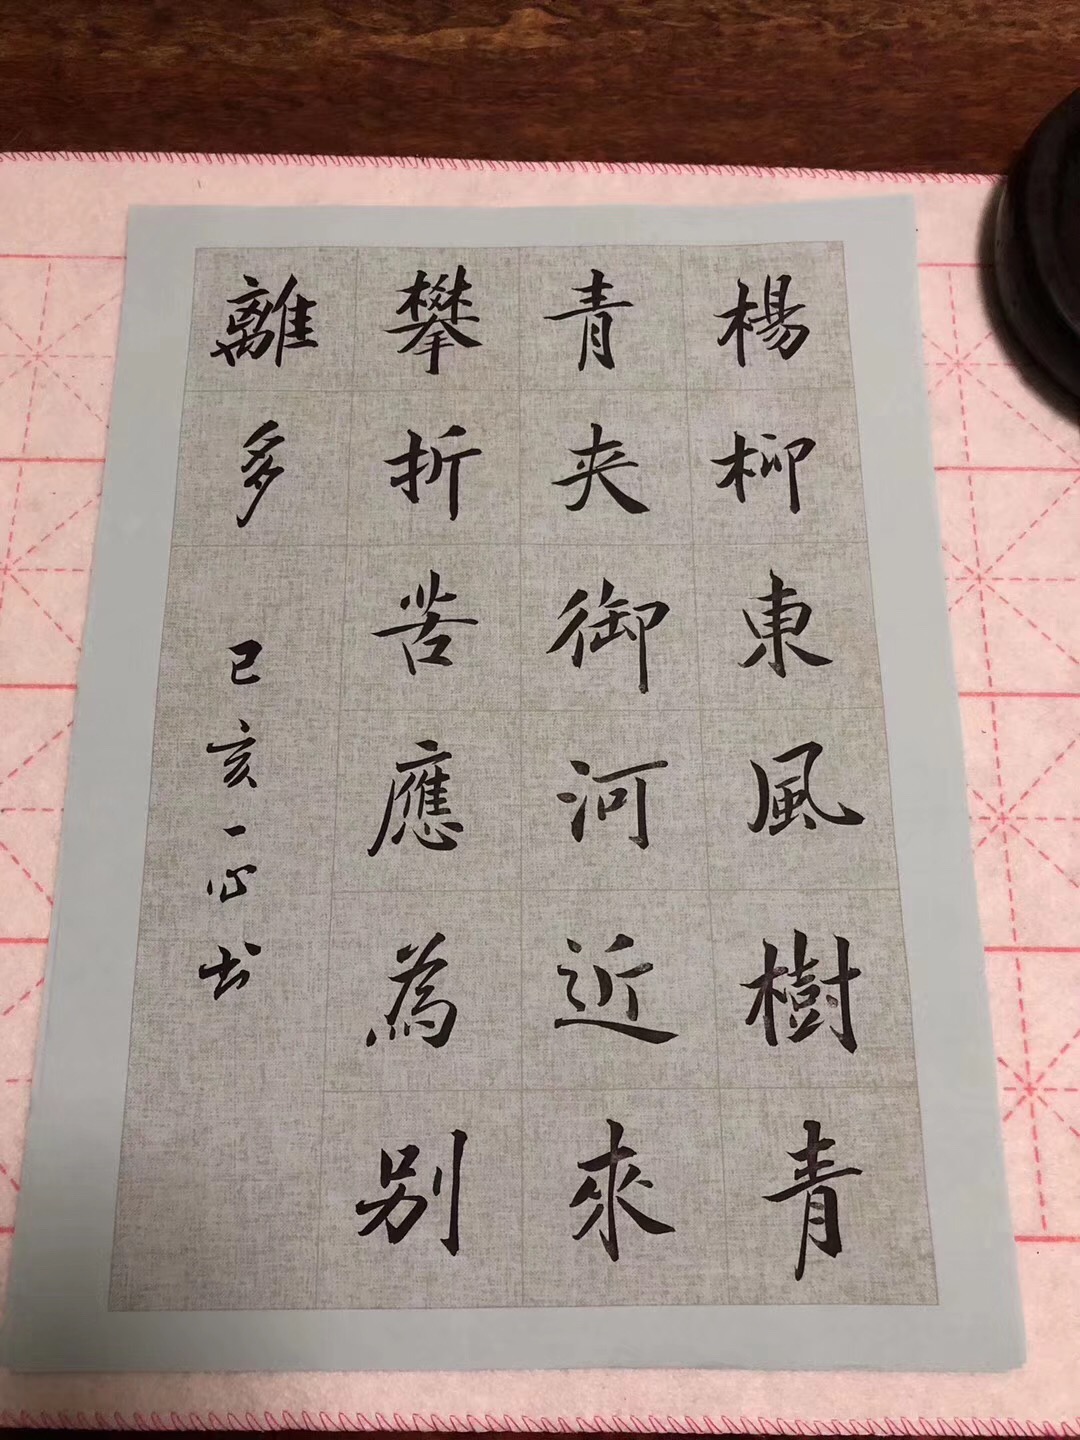 楊柳東風樹青
青夾御河近來
攀折苦應為別
離多
己亥一心书